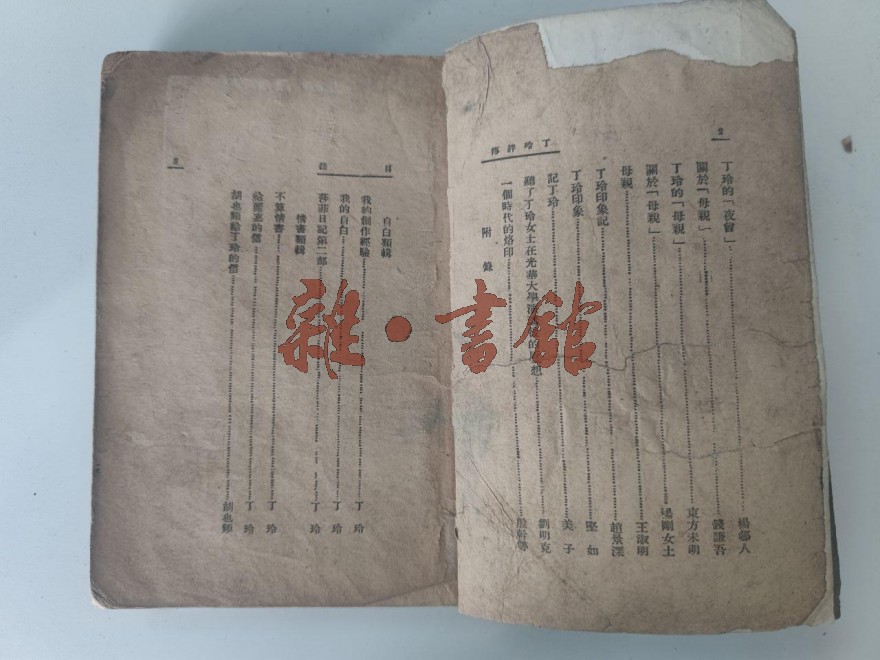 2
丁玲評傳
丁玲的「夜會」……楊邨人
關於「母親」……錢謙吾
丁玲的「母親」……東方未明
關於「母親」……楊剛女士
母親……王淑明
丁玲印象記……趙景深
丁玲印象……堅如
記丁玲……美子
聽了丁玲女士在光華大學的想……劉明克
一個時代的烙印……殷幹
附錄
目錄
3
自白類輯
我的創作經驗……丁玲
我的自白……丁玲
莎菲日記第二部……丁玲
情書類輯
不算情書……丁玲
給的信……丁玲
胡也頻給丁玲的信……胡也頻
雜·書館